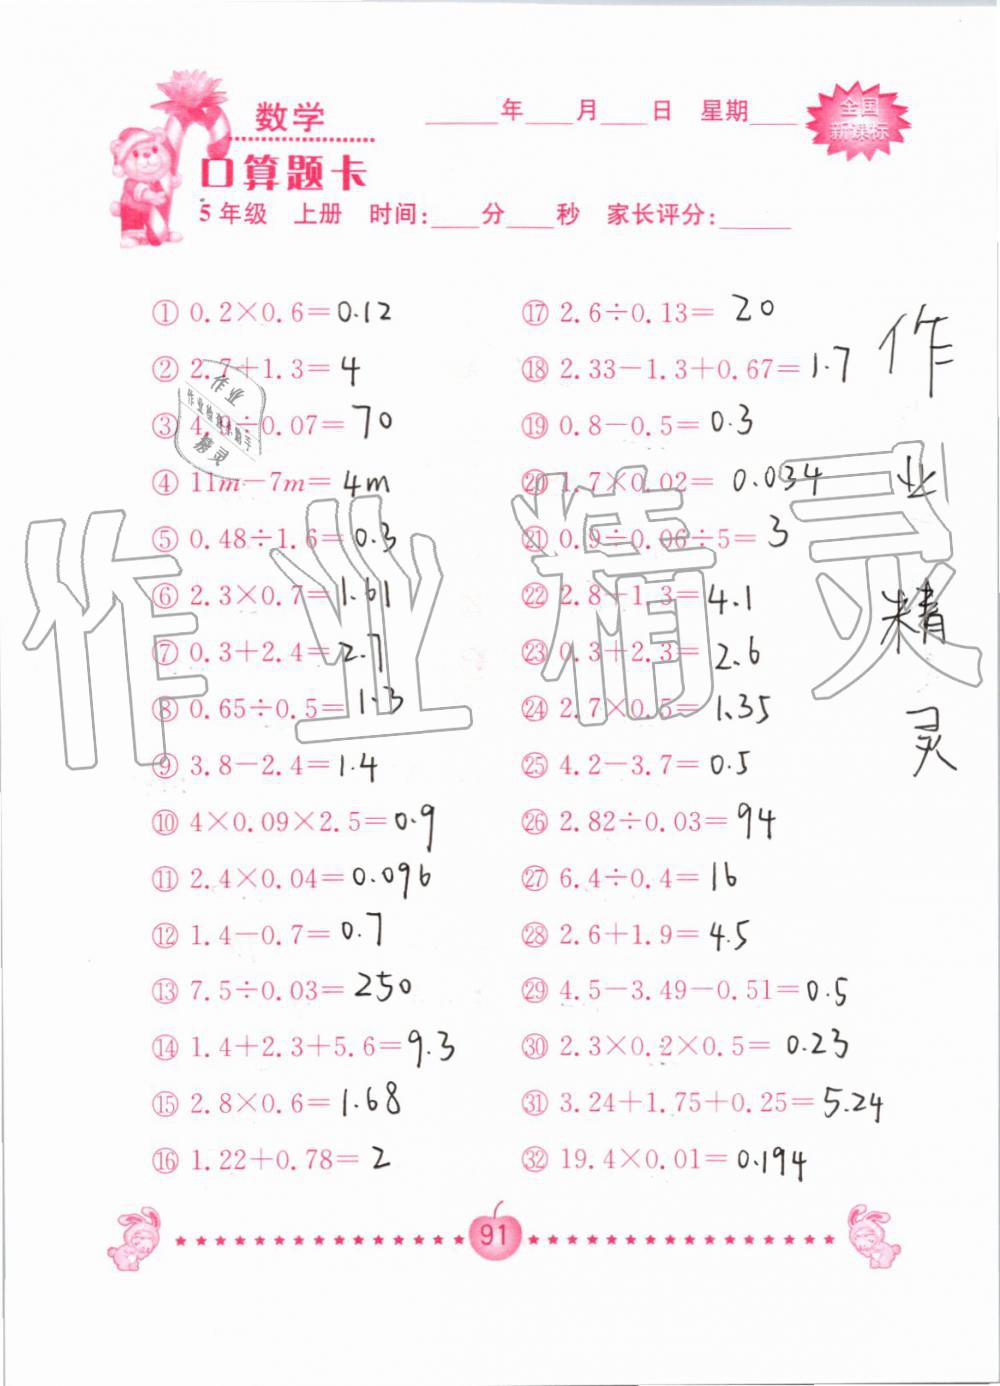 数学
____年____月____日 星期____
全国
新课标
口算题卡
5年级 上册 时间:____分____秒 家长评分:______
① 0.2×0.6=0.12
② 2.7+1.3=4
③ 4.9÷0.07=70
④ 11m-7m=4m
⑤ 0.48÷1.6=0.3
⑥ 2.3×0.7=1.61
⑦ 0.3+2.4=2.7
⑧ 0.65÷0.5=1.3
⑨ 3.8-2.4=1.4
⑩ 4×0.09×2.5=0.9
⑪ 2.4×0.04=0.096
⑫ 1.4-0.7=0.7
⑬ 7.5÷0.03=250
⑭ 1.4+2.3+5.6=9.3
⑮ 2.8×0.6=1.68
⑯ 1.22+0.78=2
⑰ 2.6÷0.13=20
⑱ 2.33-1.3+0.67=1.7
⑲ 0.8-0.5=0.3
⑳ 1.7×0.02=0.034
㉑ 0.9÷0.06÷5=3
㉒ 2.8+1.3=4.1
㉓ 0.3+2.3=2.6
㉔ 2.7×0.5=1.35
㉕ 4.2-3.7=0.5
㉖ 2.82÷0.03=94
㉗ 6.4÷0.4=16
㉘ 2.6+1.9=4.5
㉙ 4.5-3.49-0.51=0.5
㉚ 2.3×0.2×0.5=0.23
㉛ 3.24+1.75+0.25=5.24
㉜ 19.4×0.01=0.194
作
业
精
灵
作业精灵
作业
作业检查小助手
精灵
91